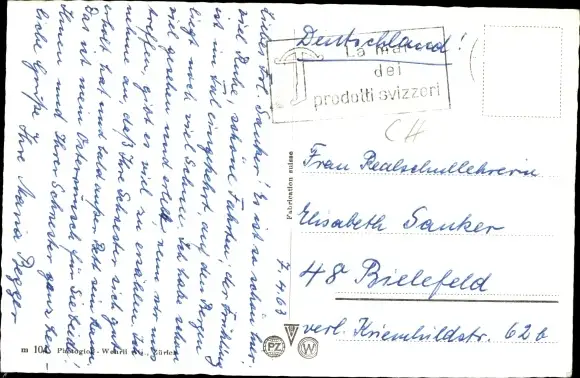 Liebes Frl. Sauker! Es ist so schön hier:
viel Ruhe, schöne Fahrten, der Frühling
ist im Tal eingekehrt, auf den Bergen
liegt noch viel Schnee. Ich habe schon
viel gesehen und erlebt, wenn wir uns
treffen, gibt es viel zu erzählen. Ich
nehme an, daß Ihre Schwester sich gut
erholt hat und bald außer Bett sein kann.
Das ist mein Osterwunsch für Sie beide!
Ihnen und Ihrer Schwester ganz
liebe Grüße Ihre Maria
7.4.63
Deutschland!
La
dei
prodotti svizzeri
CH
Frau Realschullehrerin
Elisabeth Sauker
48 Bielefeld
verl. Kriemhildstr. 62b
Fabrication suisse
PZ W
m 104 Photoglob-Wehrli Zürich